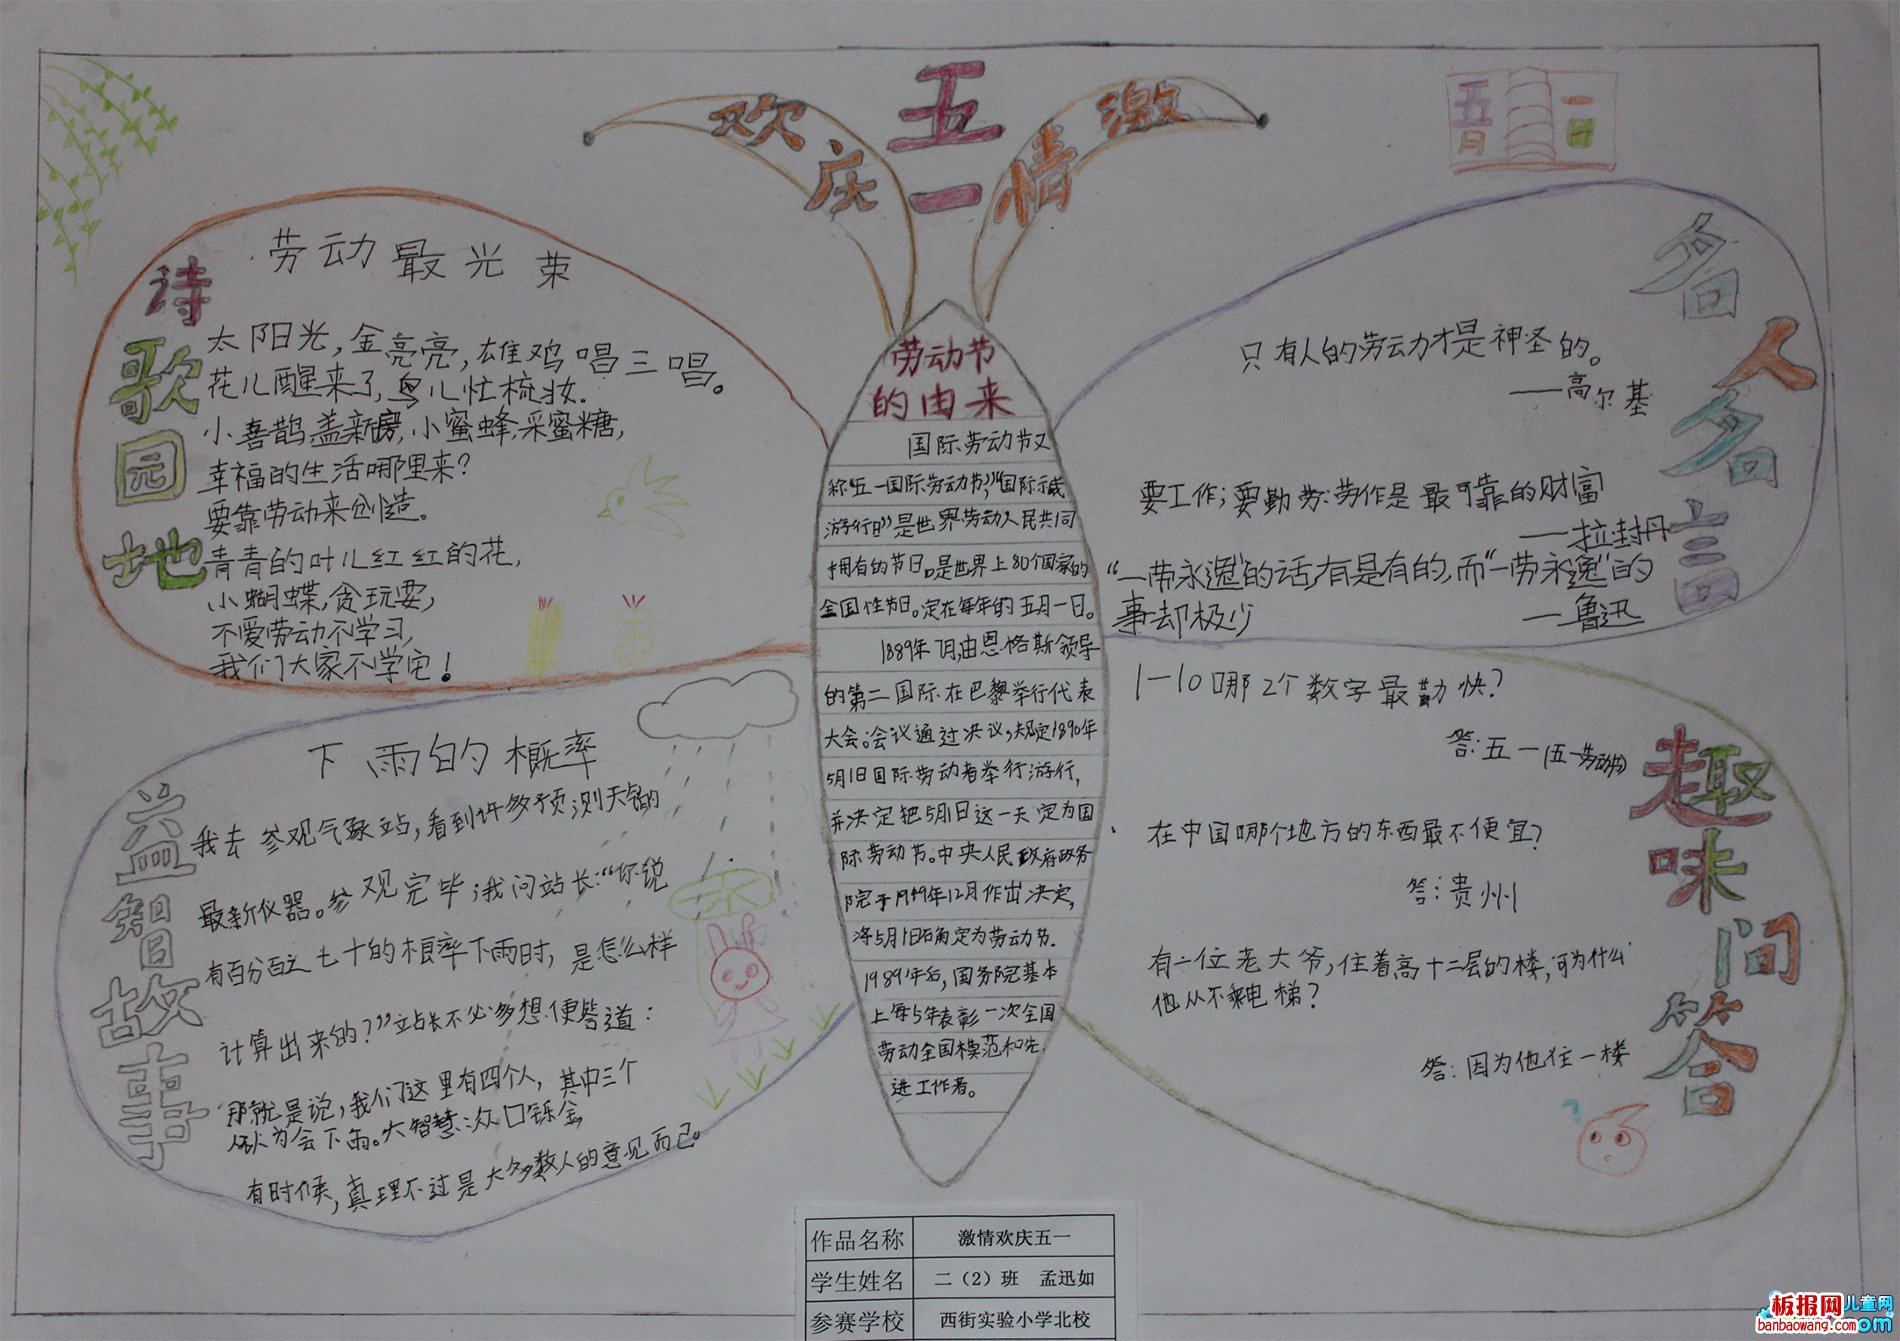 欢庆
五一
激情
五月
一日
诗歌园地
劳动最光荣
太阳光，金亮亮，雄鸡唱三唱。
花儿醒来了，鸟儿忙梳妆.
小喜鹊,盖新房,小蜜蜂,采蜜糖,
幸福的生活哪里来?
要靠劳动来创造。
青青的叶儿红红的花,
小蝴蝶,贪玩耍,
不爱劳动不学习,
我们大家不学它!
劳动节
的由来
国际劳动节又
称“五一国际劳动节”,“国际示威
游行日”)是世界劳动人民共同
拥有的节日。是世界上80个国家的
全国性节日。定在每年的五月一日。
1889年7月,由恩格斯领导
的第二国际在巴黎举行代表
大会。会议通过决议,规定1890年
5月1日国际劳动者举行游行,
并决定把5月1日这一天定为国
际劳动节。中央人民政府政务
院于1949年12月作出决定,
将5月1日确定为劳动节.
1989年后,国务院基本
上每5年表彰一次全国
劳动全国模范和先
进工作者。
名人名言
只有人的劳动才是神圣的。
——高尔基
要工作;要勤劳:劳作是最可靠的财富
——拉封丹
“一劳永逸”的话,有是有的,而“一劳永逸”的
事却极少
——鲁迅
益智故事
下雨的概率
我去参观气象站,看到许多预测天气的
最新仪器。参观完毕;我问站长:“你说
有百分之七十的概率下雨时,是怎么样
计算出来的?”站长不必多想便答道:
那就是说,我们这里有四个人,其中三个
认为会下雨。大智慧:众口铄金,
有时候,真理不过是大多数人的意见而己。
趣味问答
1-10哪2个数字最勤快?
答:五一(五一劳动节)
在中国哪个地方的东西最不便宜?
答:贵州
有一位老大爷,住着高十二层的楼,可为什么
他从不乘电梯?
答:因为他住一楼
作品名称 激情欢庆五一
学生姓名 二（2）班 孟迅如
参赛学校 西街实验小学北校
板报网
儿童网
banbaowang.com